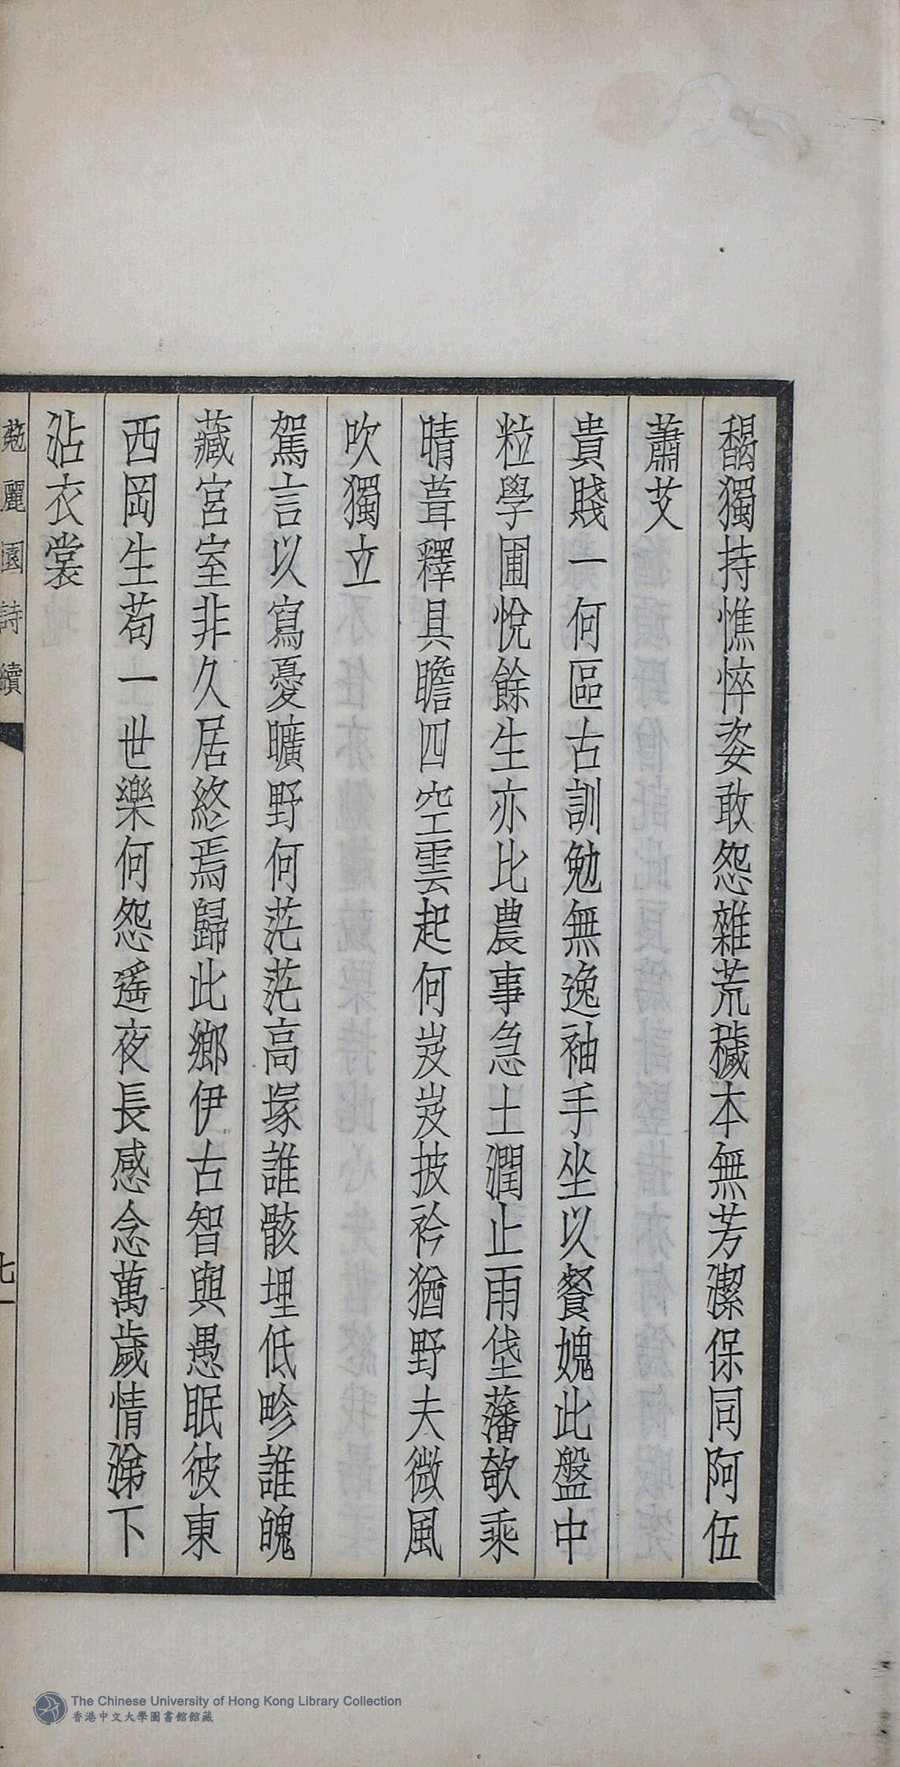 馤獨持憔悴姿敢怨雜荒穢本無芳潔保同阿伍
蕭艾
貴賤一何區古訓勉無逸袖手坐以餐媿此盤中
粒學圃悅餘生亦比農事急土潤止雨垡藩欹乘
晴葺釋具瞻四空雲起何岌岌披衿猶野夫微風
吹獨立
駕言以寫憂曠野何茫茫高塚誰骸埋低畛誰魄
藏宮室非久居終焉歸此鄉伊古智與愚眠彼東
西岡生苟一世樂何怨遙夜長感念萬歲情涕下
沾衣裳
麗園詩續
The Chinese University of Hong Kong Library Collection
香港中文大學圖書館館藏